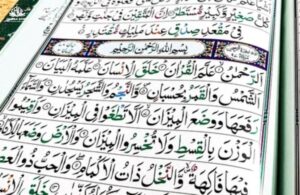 صَغِيرٍ وَكَبِيرٍ مُسْتَطَرٌ إِنَّ الْمُتَّقِينَ فِي جَنَّاتٍ وَنَهَرٍ
فِي مَقْعَدِ صِدْقٍ عِنْدَ مَلِيكٍ مُقْتَدِرٍ
بِسْمِ اللَّهِ الرَّحْمَٰنِ الرَّحِيمِ
الرَّحْمَٰنُ عَلَّمَ الْقُرْآنَ خَلَقَ الْإِنْسَانَ عَلَّمَهُ الْبَيَانَ
الشَّمْسُ وَالْقَمَرُ بِحُسْبَانٍ وَالنَّجْمُ وَالشَّجَرُ يَسْجُدَانِ وَالسَّمَاءَ
رَفَعَهَا وَوَضَعَ الْمِيزَانَ أَلَّا تَطْغَوْا فِي الْمِيزَانِ وَأَقِيمُوا
الْوَزْنَ بِالْقِسْطِ وَلَا تُخْسِرُوا الْمِيزَانَ وَالْأَرْضَ وَضَعَهَا
فِيهَا فَاكِهَةٌ وَالنَّخْلُ ذَاتُ الْأَكْمَامِ وَالْحَبُّ ذُو الْعَصْفِ